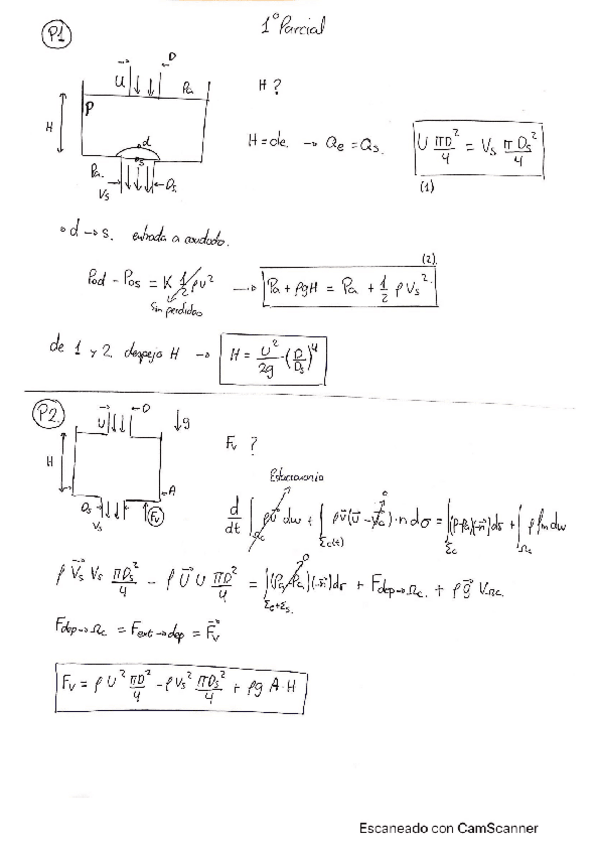 1º Parcial
P1
U D Pa
H ?
P
H
d
s
H = cte. → Qe = Qs.
U πD²/4 = Vs πDs²/4
(1)
Pa. Vs Ds
• d → s. entrada a conducto.
(2).
Pod - Pos = K 1/2 ρU² → Pa + ρgH = Pa + 1/2 ρVs².
Sin perdidas
de 1 y 2 despejo H → H = U²/2g · (D/Ds)⁴
P2
U D g
Fv ?
H
A
Ds Vs Fv
Estacionario
d/dt ∫Ωc ρv dω + ∫Σc(t) ρv(v - vc)·n dσ = ∫Σc (P-Pa)(-n) dσ + ∫Ωc ρ fm dω
0
ρ Vs Vs πDs²/4 - ρ U U πD²/4 = ∫Σe+Σs (Pa-Pa)(-n) dσ + Fdep→Ωc + ρ g VΩc.
0
Fdep→Ωc = Fext→dep = Fv
Fv = ρ U² πD²/4 - ρVs² πDs²/4 + ρg A·H
Escaneado con CamScanner